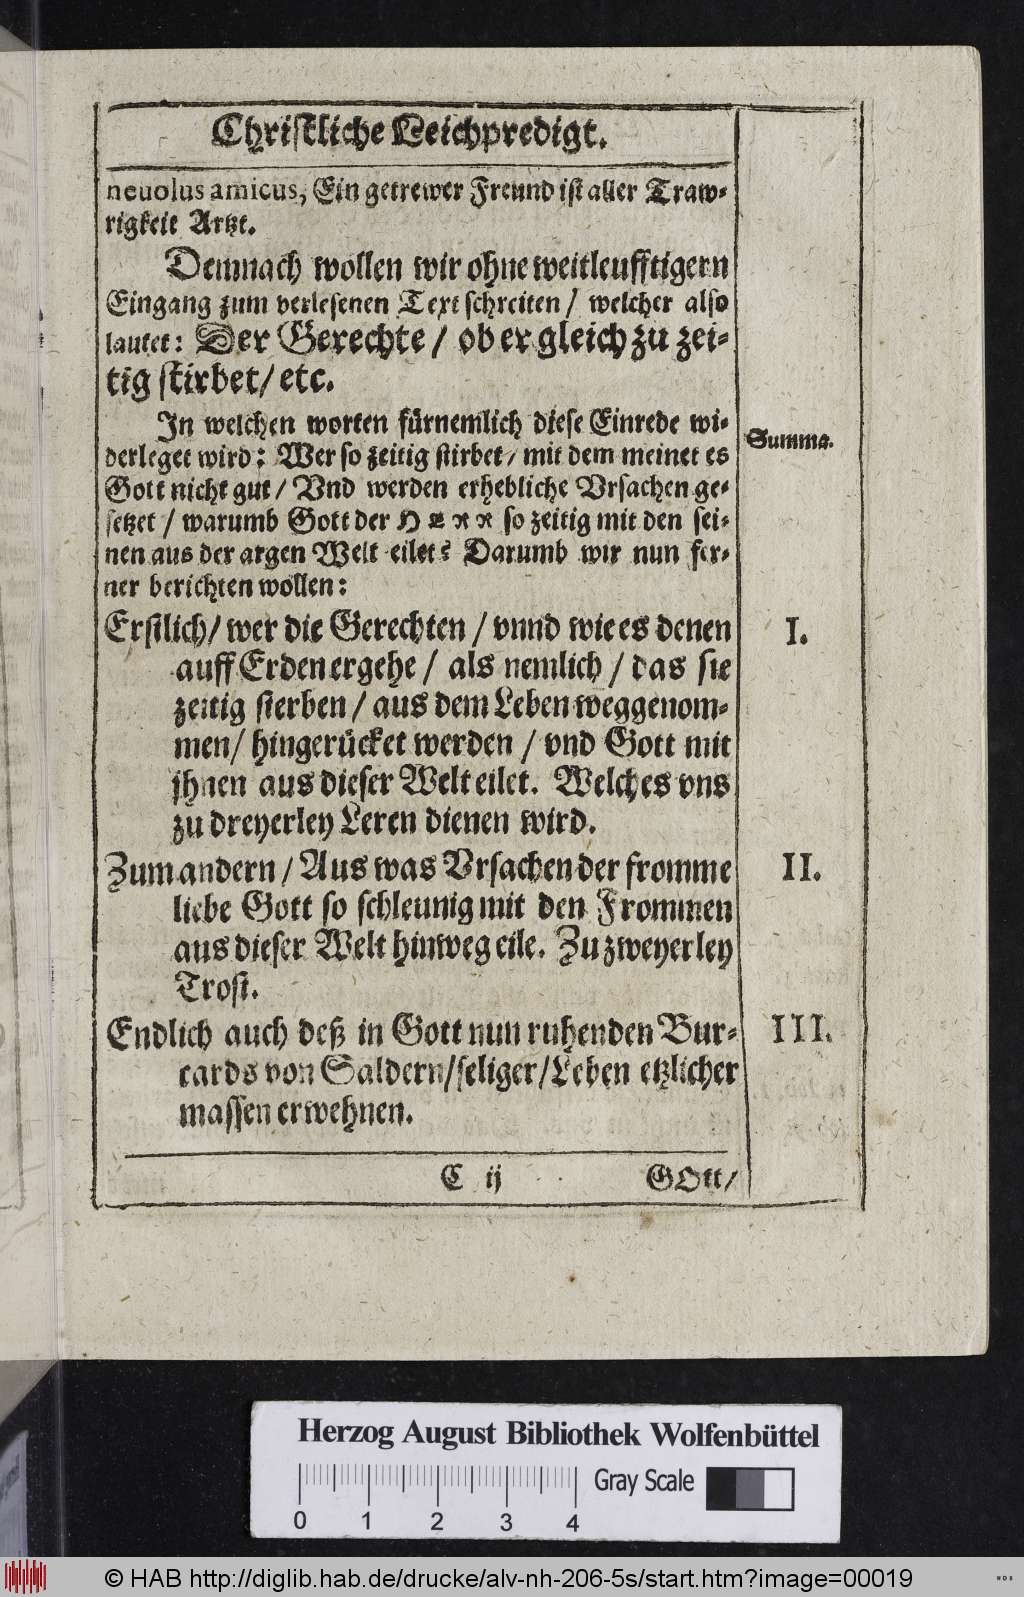 Christliche Leichpredigt.
neuolus amicus, Ein getrewer Freund ist aller Traw-
rigkeit Artzt.
Demnach wollen wir ohne weitleufftigern
Eingang zum verlesenen Text schreiten / welcher also
lautet: Der Gerechte / ob er gleich zu zei-
tig stirbet / etc.
In welchen worten fürnemlich diese Einrede wi-
derleget wird: Wer so zeitig stirbet / mit dem meinet es
Gott nicht gut / Vnd werden erhebliche Vrsachen ge-
setzet / warumb Gott der HERR so zeitig mit den sei-
nen aus der argen Welt eilet? Darumb wir nun fer-
ner berichten wollen:
Summa.
Erstlich / wer die Gerechten / vnnd wie es denen
auff Erden ergehe / als nemlich / das sie
zeitig sterben / aus dem Leben weggenom-
men / hingerücket werden / vnd Gott mit
jhnen aus dieser Welt eilet. Welches vns
zu dreyerley Leren dienen wird.
I.
Zum andern / Aus was Vrsachen der fromme
liebe Gott so schleunig mit den Frommen
aus dieser Welt hinweg eile. Zu zweyerley
Trost.
II.
Endlich auch deß in Gott nun ruhenden Bur-
cards von Saldern / seliger / Leben etzlicher
massen erwehnen.
III.
C ij
GOtt /
Herzog August Bibliothek Wolfenbüttel
Gray Scale
0 1 2 3 4
© HAB http://diglib.hab.de/drucke/alv-nh-206-5s/start.htm?image=00019